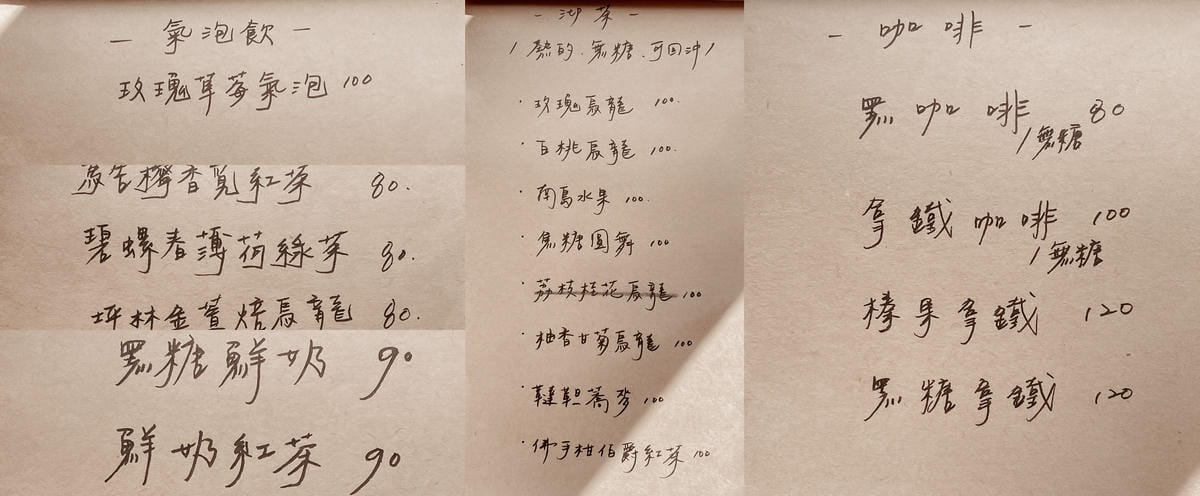 — 氣泡飲 —
玫瑰草莓氣泡 100
香覓紅茶 80.
碧螺春薄荷綠茶 80.
坪林金萱焙烏龍 80.
黑糖鮮奶 90
鮮奶紅茶 90
— 沏茶 —
/ 熱的、無糖、可回沖 /
· 玫瑰烏龍 100.
· 白桃烏龍 100.
· 南島水果 100.
· 焦糖圓舞 100
· 荔枝桂花烏龍 100
· 柚香甘菊烏龍 100
· 韃靼蕎麥 100
· 佛手柑伯爵紅茶 100
— 咖啡 —
黑咖啡 80
/無糖
拿鐵咖啡 100
/無糖
榛果拿鐵 120
黑糖拿鐵 120